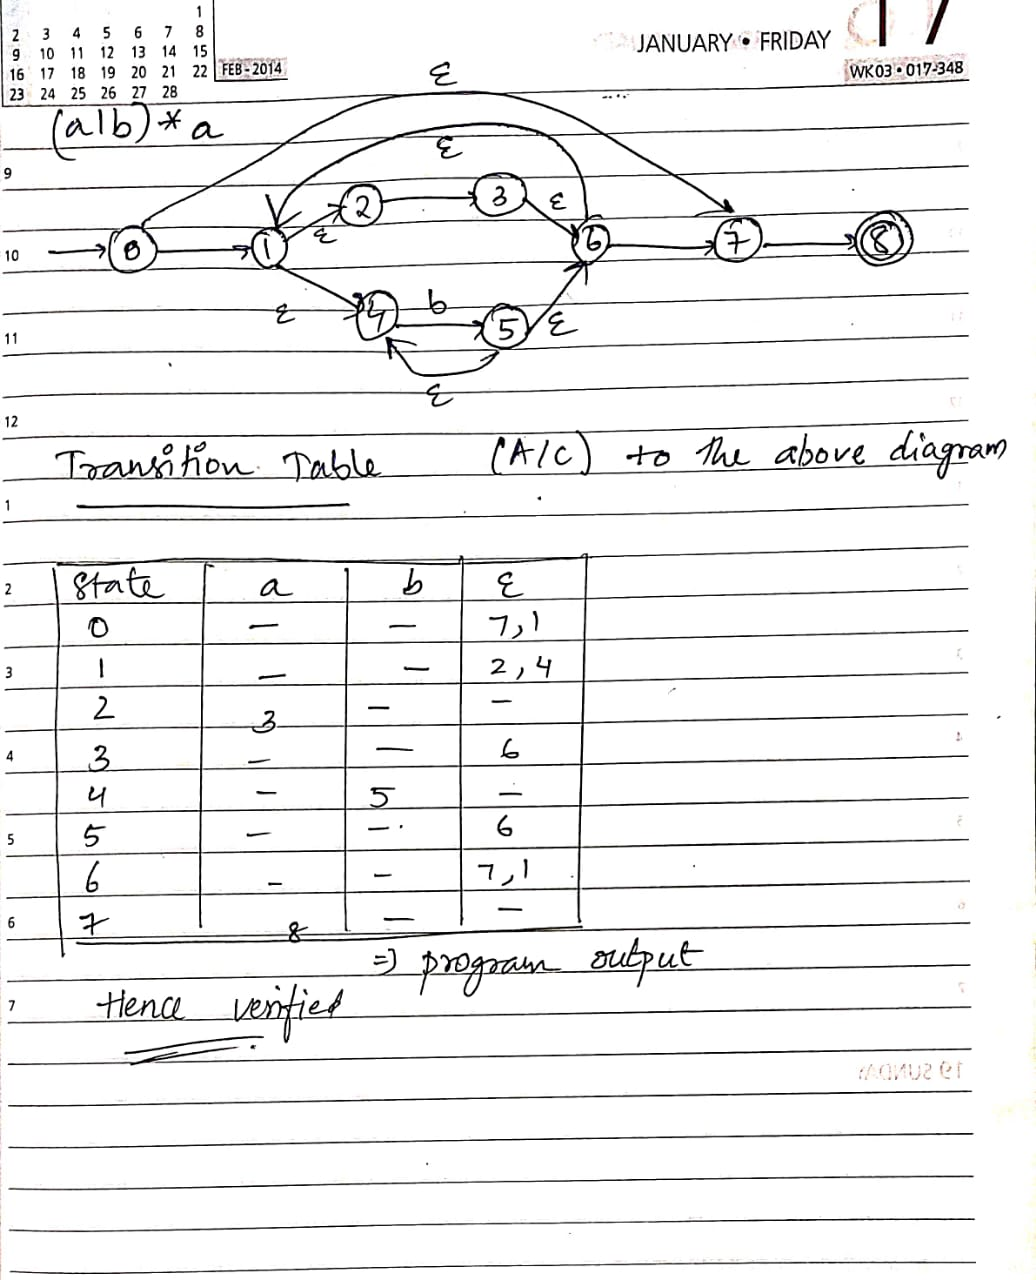 1
2 3 4 5 6 7 8
9 10 11 12 13 14 15
16 17 18 19 20 21 22 FEB - 2014
23 24 25 26 27 28
JANUARY • FRIDAY 17
WK 03 • 017-348
(a|b)*a
ε
ε
9
2 3 ε
ε
10 0 1 6 7 8
ε 4 b 5 ε
11
ε
12
Transition Table (A/C) to the above diagram
1
2 State a b ε
0 — — 7,1
3 1 — — 2,4
2 3 — —
4 3 — — 6
4 — 5 —
5 5 — — 6
6 — — 7,1
6 7 8 — —
=) program output
7 Hence verified
19 SUNDAY